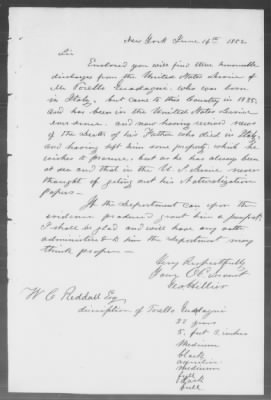 New York June 14th 1852
Sir
Enclosed you will find three honorable
discharges from the United States Service of
Mr Torello Guadagni, who was born
in Italy, but came to this Country in 1835,
and has been in the United States Service
ever since, and now having received news
of the Death of his Father who died in Italy,
and having left him some property which he
wishes to procure, but as he has always been
at sea and that in the U. S. never
thought of geting out his Naturalization
Papers—
If the Department can upon the
evidence produced grant him a passport
I shall be glad and will have any oath
administered to him the Department may
think proper—
Very Respectfully
Your Ob Servant
Geo Hillier
W. C. Reddall Esq
discription of Torello Guadagni
32 years
5 feet 2 inches
Medium
black
aquiline
medium
full
dark
full